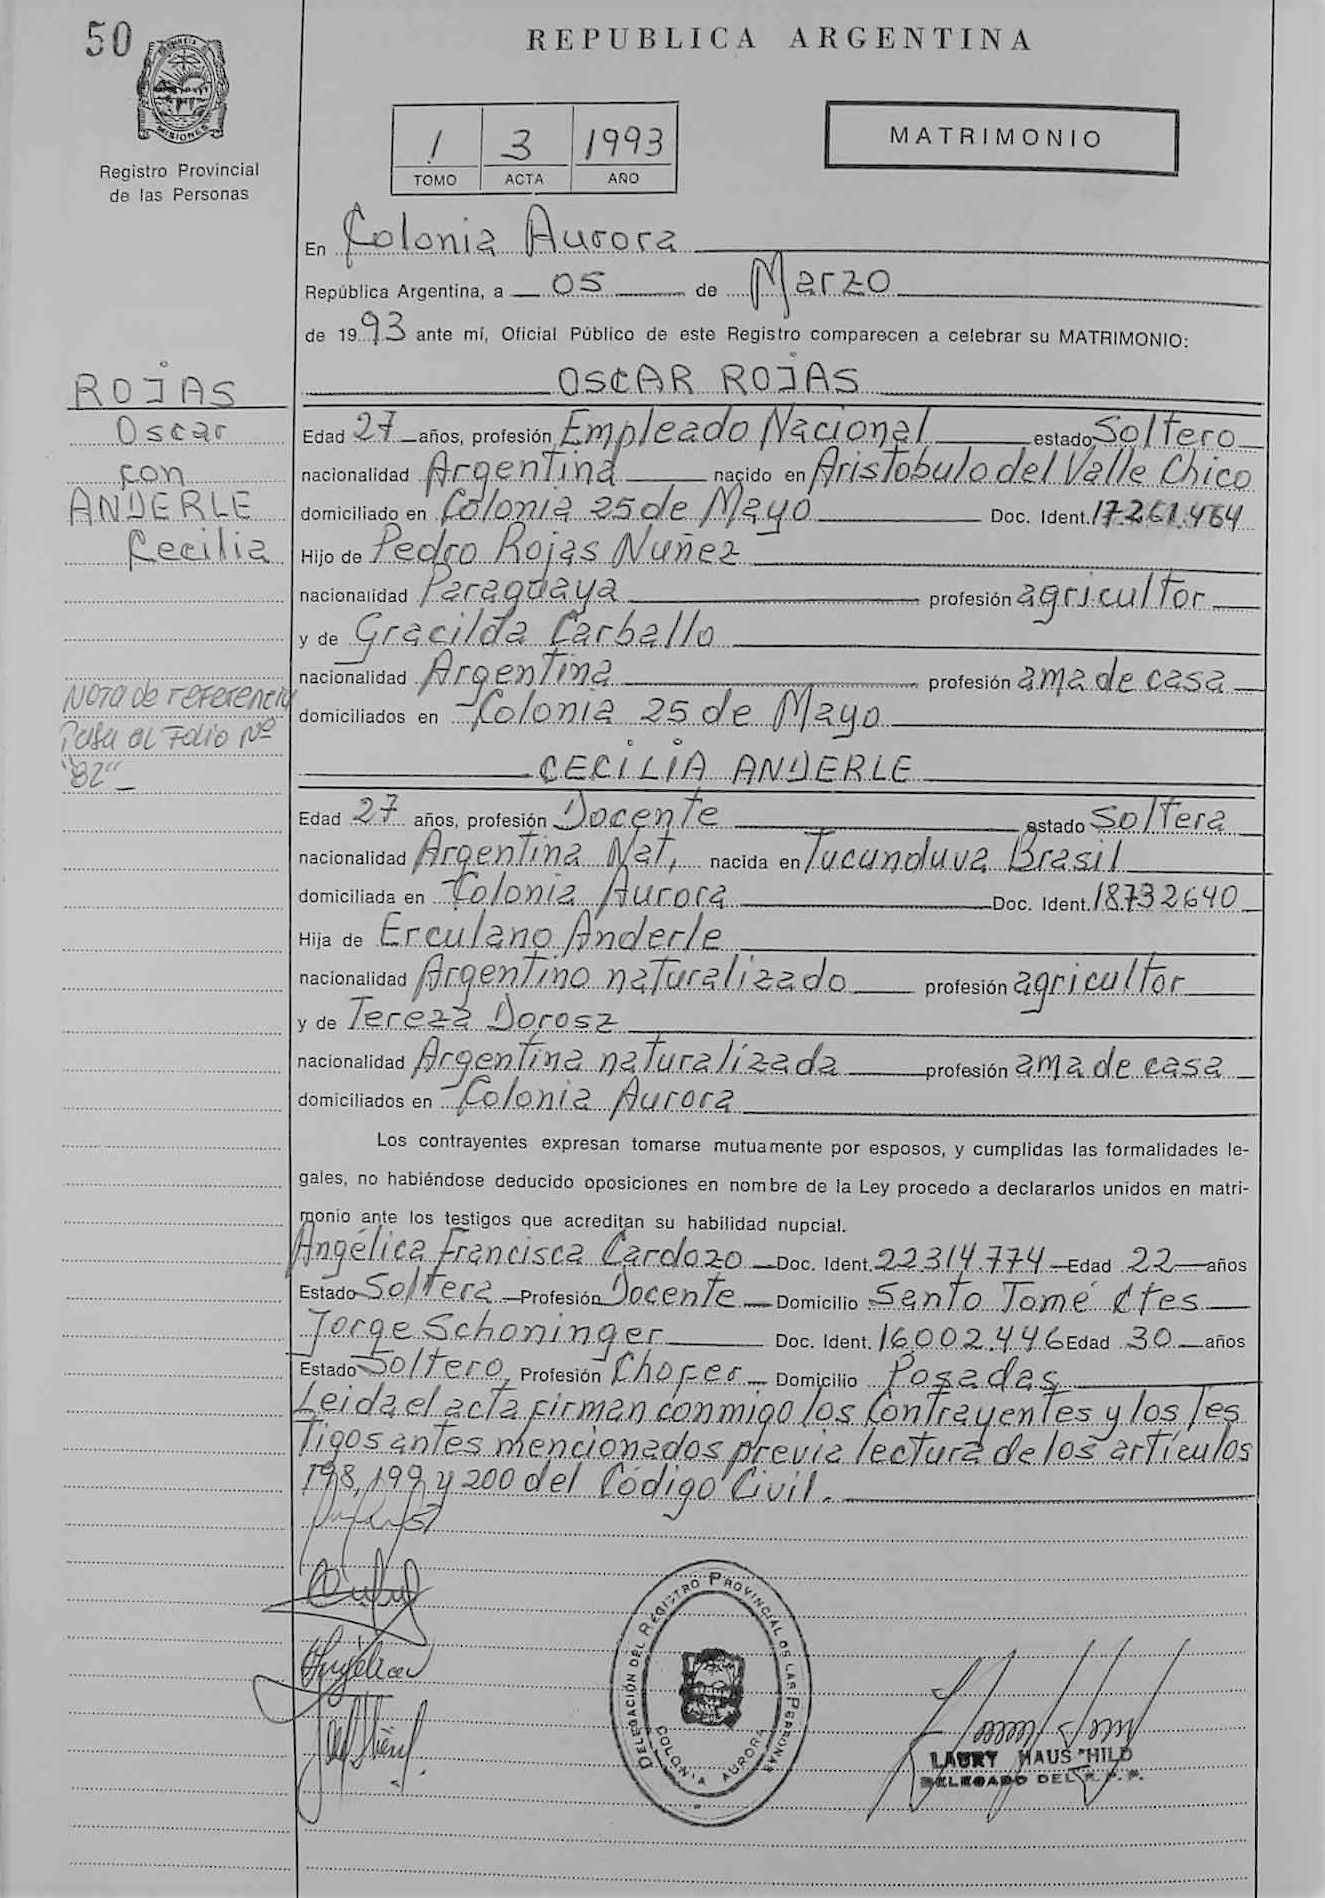 50
REPUBLICA ARGENTINA
MISIONES
Registro Provincial
de las Personas
1 3 1993
TOMO ACTA AÑO
MATRIMONIO
En Colonia Aurora
República Argentina, a 05 de Marzo
de 1993 ante mí, Oficial Público de este Registro comparecen a celebrar su MATRIMONIO:
ROJAS
Oscar
con
ANDERLE
Cecilia
Nota de referencia
Pasa al Folio Nº
"82"
OSCAR ROJAS
Edad 27 años, profesión Empleado Nacional estado Soltero
nacionalidad Argentina nacido en Aristobulo del Valle Chico
domiciliado en Colonia 25 de Mayo Doc. Ident. 17.261.464
Hijo de Pedro Rojas Nuñez
nacionalidad Paraguaya profesión agricultor
y de Gracilda Carballo
nacionalidad Argentina profesión ama de casa
domiciliados en Colonia 25 de Mayo
CECILIA ANDERLE
Edad 27 años, profesión Docente estado Soltera
nacionalidad Argentina Nat, nacida en Tucunduva Brasil
domiciliada en Colonia Aurora Doc. Ident. 18.732640
Hija de Erculano Anderle
nacionalidad Argentino naturalizado profesión agricultor
y de Tereza Dorosz
nacionalidad Argentina naturalizada profesión ama de casa
domiciliados en Colonia Aurora
Los contrayentes expresan tomarse mutuamente por esposos, y cumplidas las formalidades le-
gales, no habiéndose deducido oposiciones en nombre de la Ley procedo a declararlos unidos en matri-
monio ante los testigos que acreditan su habilidad nupcial.
Angélica Francisca Cardozo Doc. Ident. 22.314.774 Edad 22 años
Estado Soltera Profesión Docente Domicilio Santo Tomé Ctes
Jorge Schoninger Doc. Ident. 16.002.446 Edad 30 años
Estado Soltero, Profesión Chofer Domicilio Posadas
Leida el acta firman conmigo los Contrayentes y los Tes
tigos antes mencionados previa lectura de los artículos
198, 199 y 200 del Código Civil.
Angélica
DELEGACIÓN DEL REGISTRO PROVINCIAL DE LAS PERSONAS
COLONIA AURORA
LAURY HAUS HILD
DELEGADO DEL R.P.P.